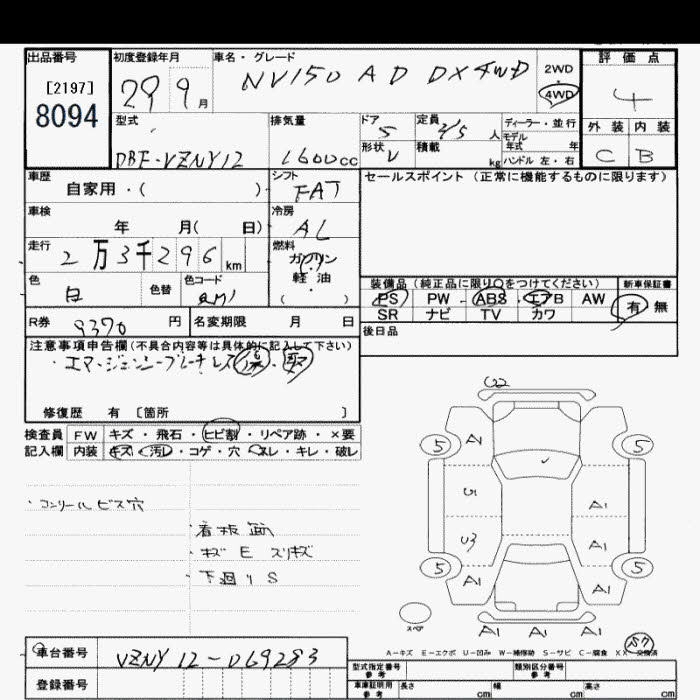 出品番号 初度登録年月 車名・グレード 評価点
[2197] 8094
29 9月 NV150 AD DX 4WD 2WD・4WD 4
型式 排気量 ドア 定員 ディーラー・並行 外装 内装
DBF-VZNY12 1600cc 5 2/5人 モデル年式 年
形状 V 積載 kg ハンドル 左・右 C B
車歴 シフト セールスポイント (正常に機能するものに限ります)
自家用・( ) FAT
車検 冷房
年 月( 日) AC
走行 燃料
2万3千296km ガソリン
軽油
( ・ )
色 色替 色コード 装備品 (純正品に限り○をつけてください) 新車保証書
白 PS PW ABS エアB AW 有 無
SR ナビ TV カワ
R券 9370円 名変期限 月 日 後日品
注意事項申告欄(不具合内容等は具体的に記入して下さい)
修復歴 有 [箇所 ]
検査員 FW キズ・飛石・ヒビ割・リペア跡・×要
記入欄 内装 キズ・汚レ・コゲ・穴・スレ・キレ・破レ
・コンソールビス穴
・看板跡
・キズ E スリキズ
・下廻り S
U2
5 A1 5
U1 A1
U3 A1
5 A1 A1 5
スペア A1 A1 A1
A-キズ E-エクボ U-凹み W-補修跡 S-サビ C-腐食 XX-交換済
車台番号 VZNY12-069283
登録番号
型式指定番号 参考 類別区分番号 参考
車庫証明用 参考 長さ cm 幅 cm 高さ cm